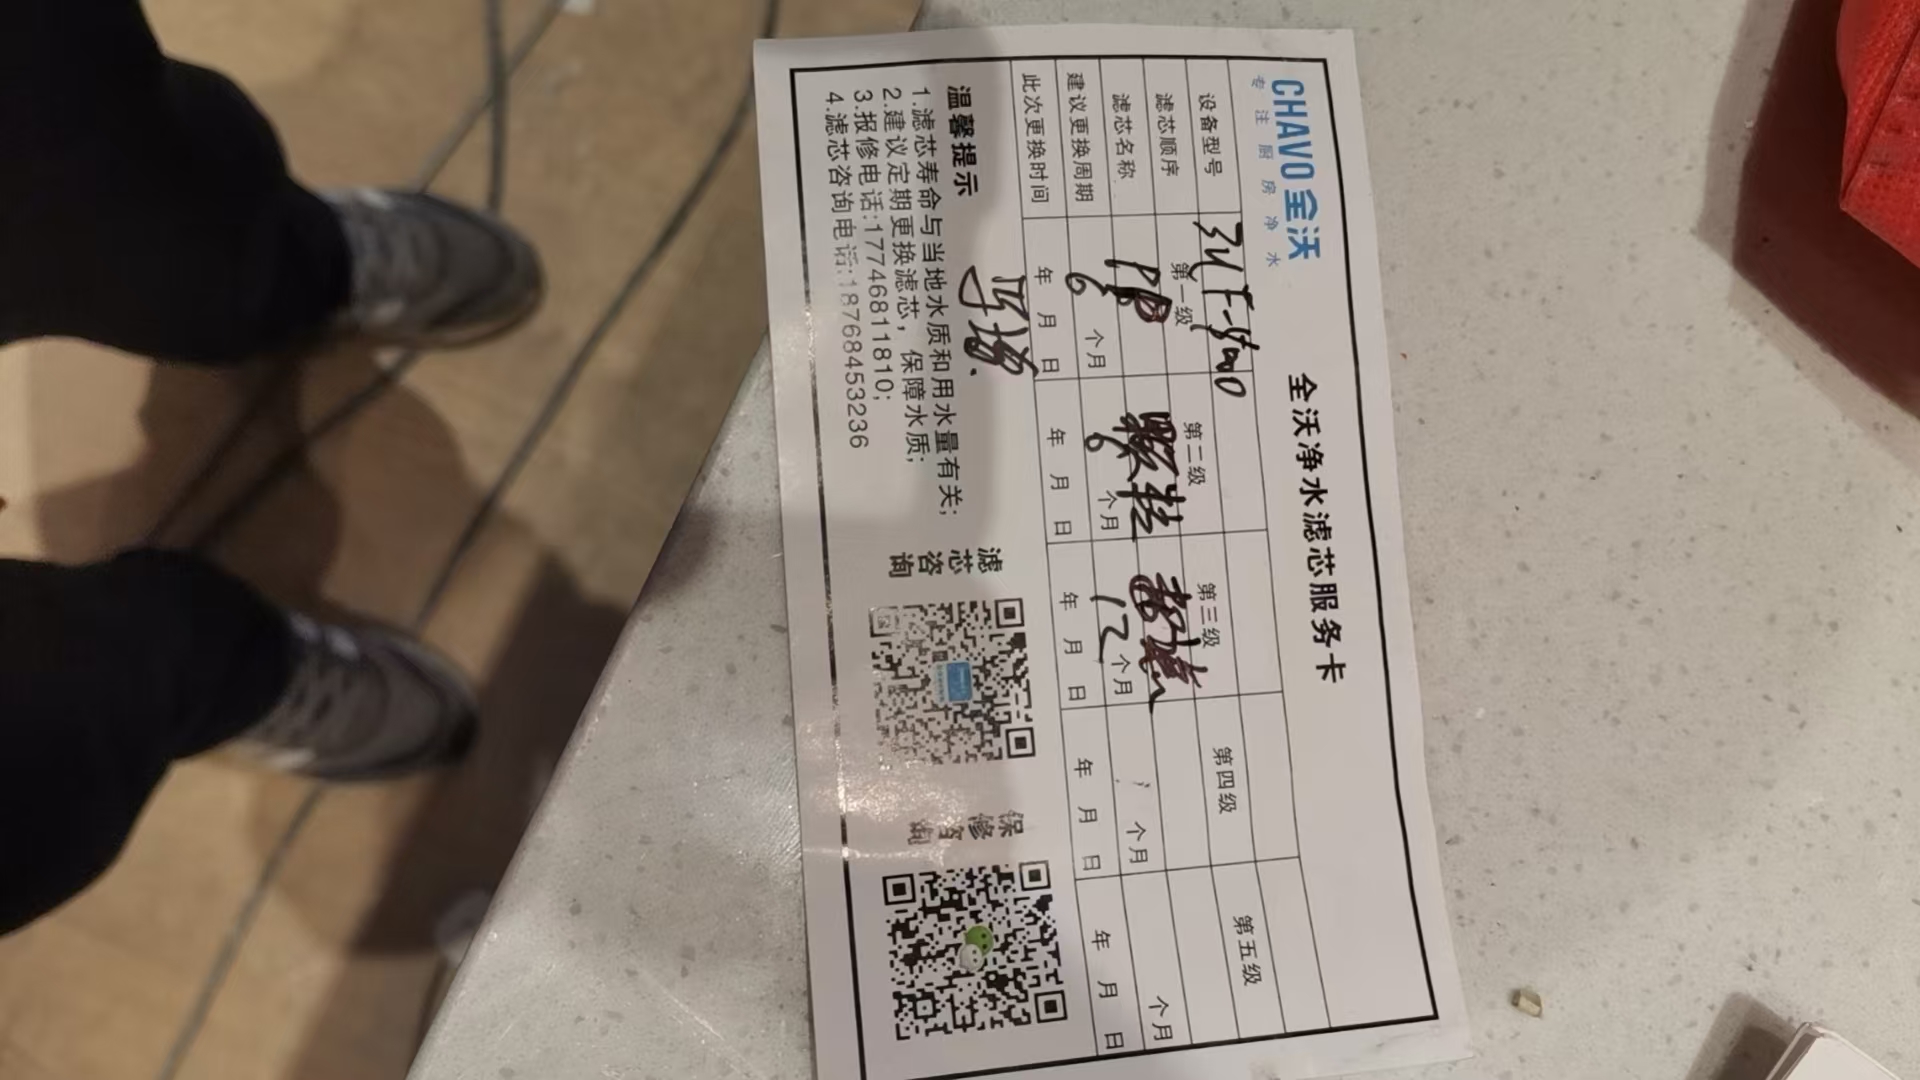 CHAVO全沃
专注厨房净水
全沃净水滤芯服务卡
设备型号
滤芯顺序 第一级 第二级 第三级 第四级 第五级
滤芯名称 PP 颗粒
建议更换周期 6个月 6个月 12个月 个月 个月
此次更换时间 年 月 日 年 月 日 年 月 日 年 月 日 年 月 日
温馨提示
1.滤芯寿命与当地水质和用水量有关;
2.建议定期更换滤芯，保障水质;
3.报修电话:17746811810;
4.滤芯咨询电话:18768453236
滤芯咨询
保修咨询